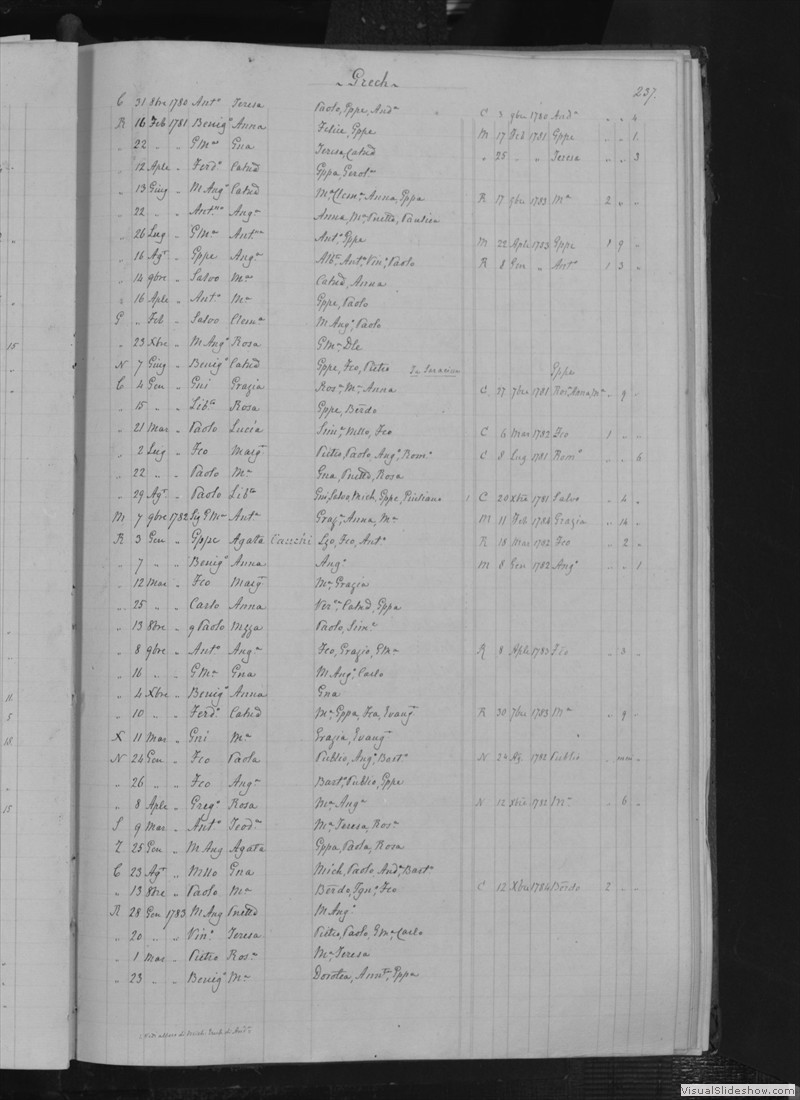 Grech
237.
C 31 8bre 1780 Antº Teresa Paolo, Gppe, Andª C 3 9bre 1780 Andª " " 4
R 16 Feb 1781 Benigº Anna Felice, Gppe M 17 Feb 1781 Gppe " " 1.
" 22 " " GMª Gna Teresa, Catnd " 25 " " Teresa " " 3
" 12 Aple " Ferdº Catnd Gppa, Gerolª
" 13 Giug " M Angº Catnd Mª, Clemª, Anna, Gppa R 17 9bre 1783 Mª 2 " "
" 22 " " Antⁿº Angª Anna, Mª, Pnetta, Paulica
" 26 Lug " GMª Antⁿª Antº, Gppe M 22 Aple 1783 Gppe 1 9 "
" 16 Agt " Gppe Angª Albª, Antº, Vinº, Paolo R 8 Gen " Antº 1 3 "
" 14 9bre " Salvo Mª Catnd, Anna
" 16 Aple " Antº Mª Gppe, Paolo
G " Feb " Salvo Clemª M Angº, Paolo
" 23 Xbre " M Angº Rosa GMª, Dle
N 7 Giug " Benigº Catnd Gppe, Fco, Pietro
Gppe
C 4 Gen " Gni Grazia Rosª, Mª, Anna C 27 7bre 1781 Rosª, Anna, Mª " 9 "
" 15 " " Libª Rosa Gppe, Berdo
" 21 Mar " Paolo Lucia Simª, Mllo, Fco C 6 Mar 1782 Fco 1 " "
" 2 Lug " Fco Margª Pietro, Paolo, Angº, Romª C 8 Lug 1781 Romª " " 6
" 22 " " Paolo Mª Gna, Pnetta, Rosa
" 29 Agt " Paolo Libª Gni, Salvo, Mich, Gppe, Giuliano 1 C 20 Xbre 1781 Salvo " 4 "
M 7 9bre 1782 Sig GMª Antª Grazª, Anna, Mª M 11 Feb 1788 Grazia " 14 "
R 3 Gen " Gppe Agata Cauchi Lzo, Fco, Antº R 18 Mar 1782 Fco " 2 "
" 7 " " Benigº Anna Angº M 8 Gen 1782 Angº " " 1
" 12 Mar " Fco Margª Mª, Grazia
" 25 " " Carlo Anna Verª, Catnd, Gppa
" 13 8bre " q Paolo Mzza Paolo, Simª
" 8 9bre " Antº Angª Fco, Grazio, GMª R 8 Aple 1783 Fco " 3 "
" 16 " " GMª Gna M Angº, Carlo
" 4 Xbre " Benigº Anna Gna
" 10 " " Ferdº Catnd Mª, Gppa, Fca, Evangª R 30 7bre 1783 Mª " 9 "
X 11 Mar " Gni Mª Grazia, Evangª
N 24 Gen " Fco Paola Publio, Angº, Bartº N 24 Ag 1782 Publio
" 26 " " Fco Angª Bartº, Publio, Gppe
" 8 Aple " Gregº Rosa Mª, Angª N 12 1782 Mª " 6 "
S 9 Mar " Antº Teodª Mª, Teresa, Rosª
Z 25 Gen " M Ang Agata Gppa, Paola, Rosa
C 23 Agt " Mllo Gna Mich, Paolo, Andª, Bartº
" 13 8bre " Paolo Mª Berdo, Ignº, Fco C 12 Xbre 1784 Berdo 2 " "
R 28 Gen 1783 M Ang Pnetta M Angº
" 20 " " Vinº Teresa Pietro, Paolo, GMª, Carlo
" 1 Mar " Pietro Rosª Mª, Teresa
" 23 " " Benigº Mª Dorotea, Annta, Gppa
15
11
5
18
15
VisualSlideshow.com